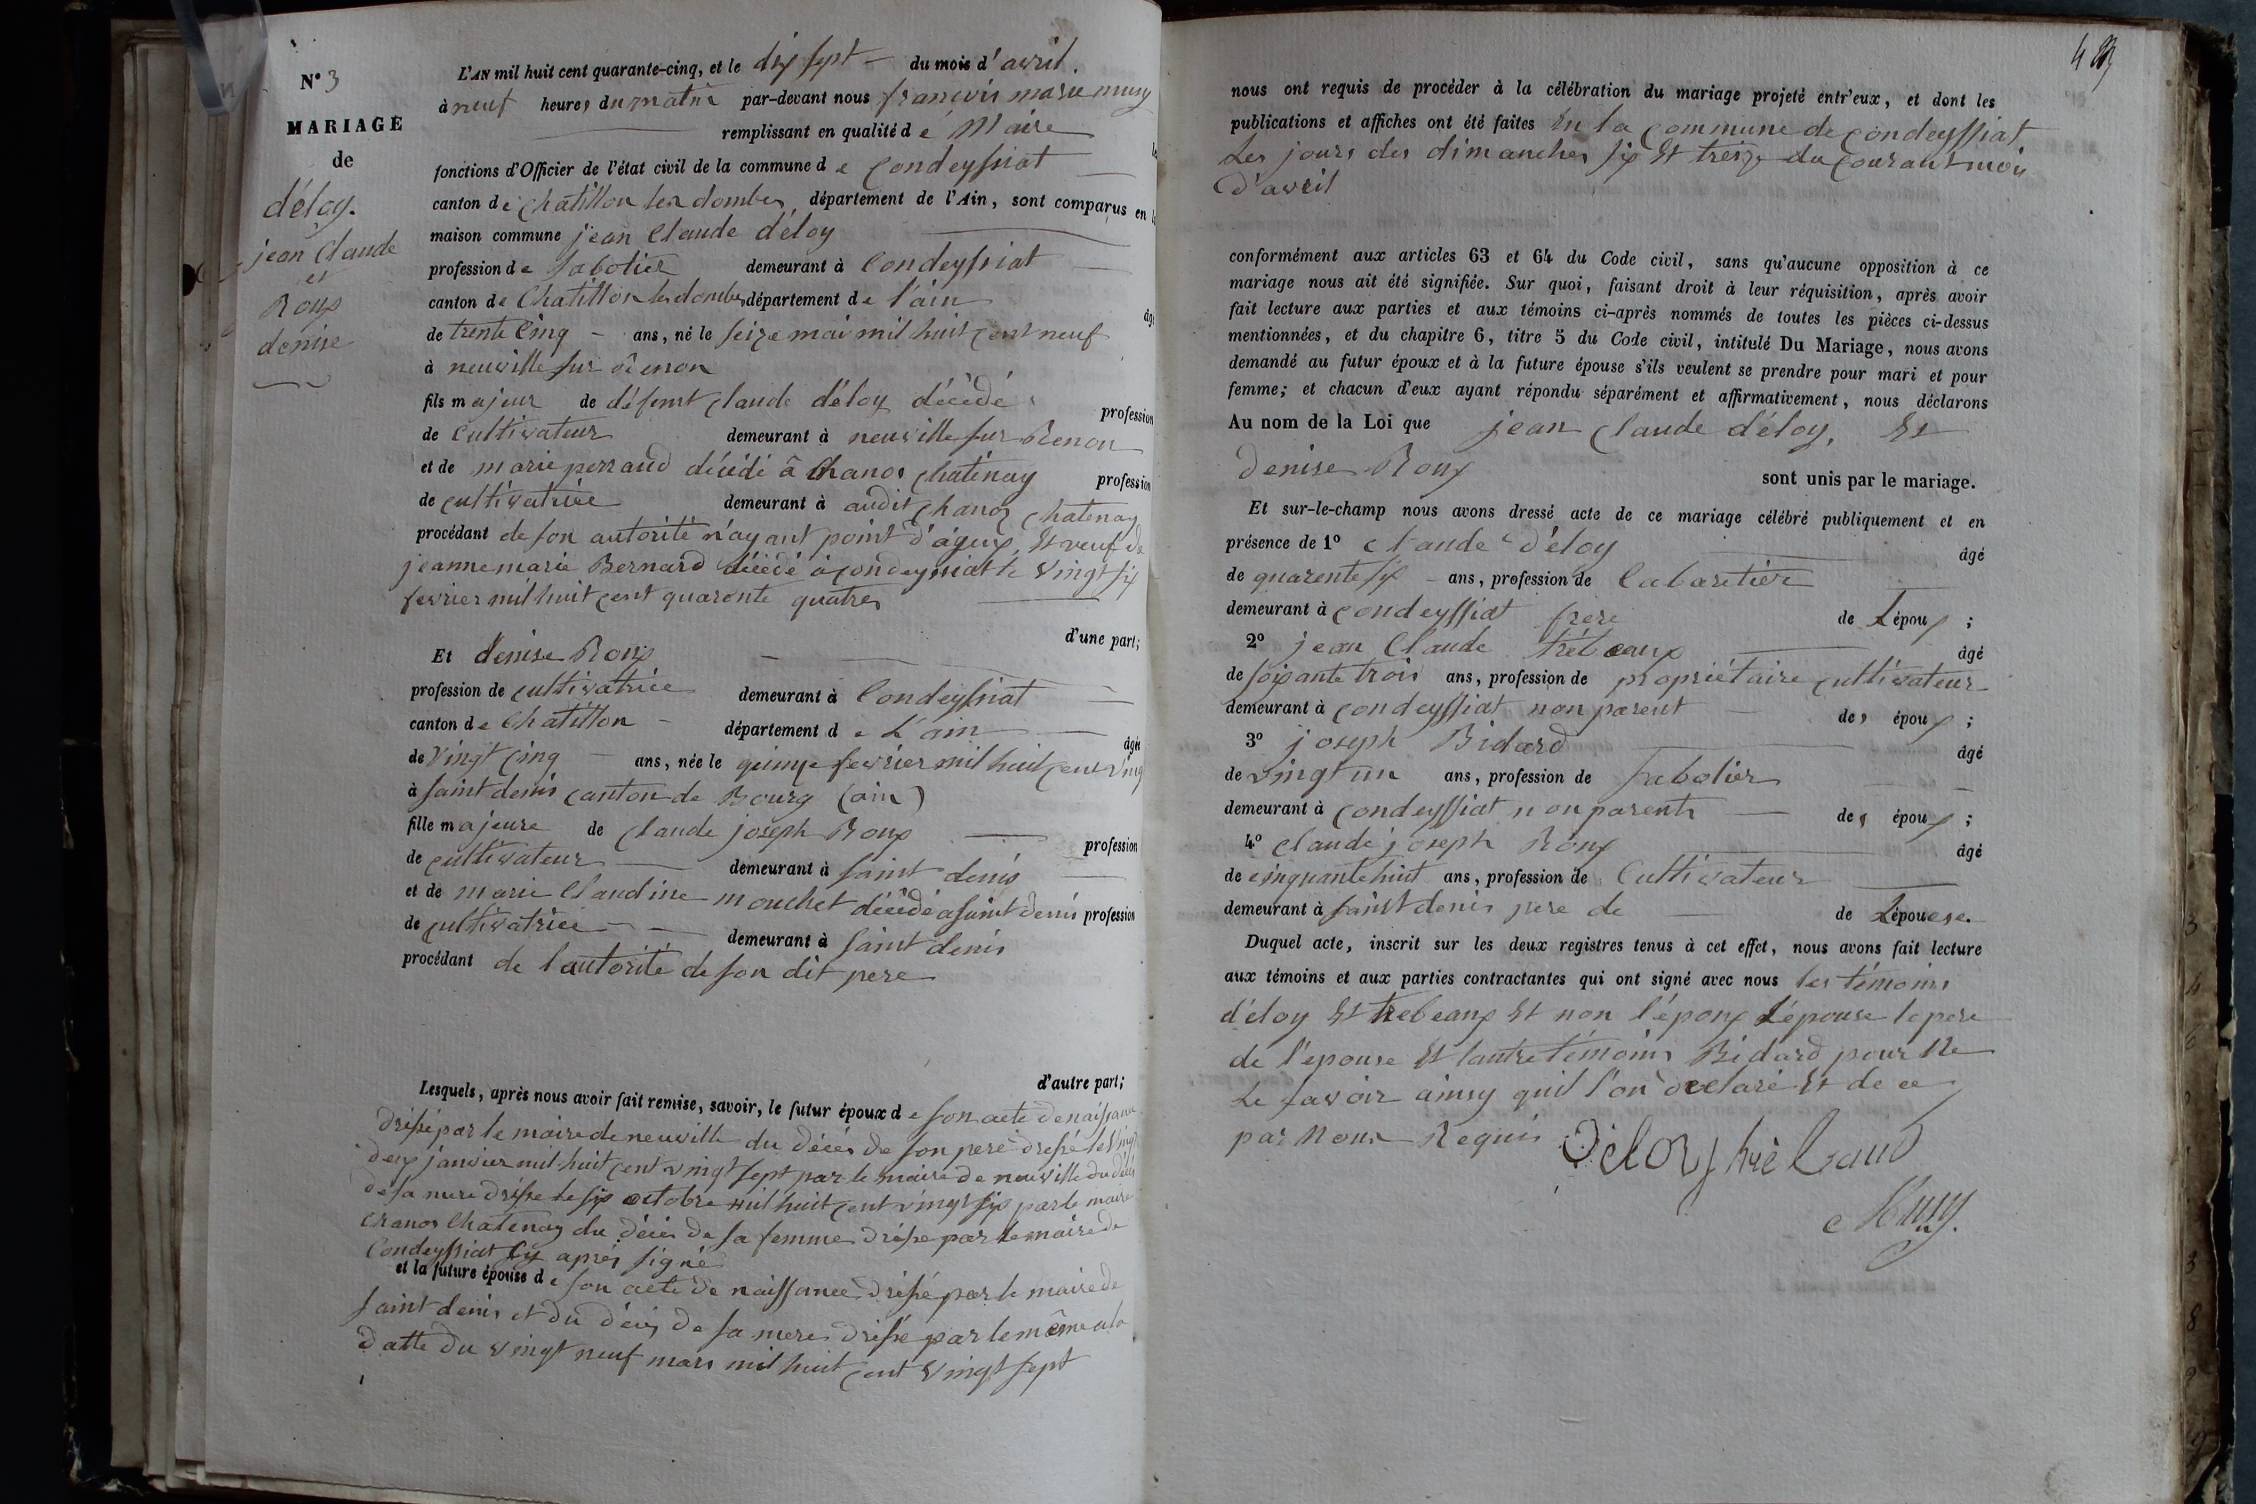 N° 3
MARIAGE
de
déloy.
jean Claude
et
Roux
denise
L'AN mil huit cent quarante-cinq, et le dix sept du mois d'avril.
à neuf heures du matin par-devant nous françois marie muny
remplissant en qualité de Maire
fonctions d'Officier de l'état civil de la commune de Condeyssiat
canton de chatillon les dombes, département de l'Ain, sont comparus en
maison commune jean Claude déloy
profession de sabotier demeurant à Condeyssiat
canton de Chatillon les dombes département de l'ain
de trente Cinq ans, né le seize mai mil huit cent neuf
à neuville sur rênon
fils majeur de défunt Claude déloy décédé profession
de Cultivateur demeurant à neuville sur Renon
et de marie perraud décédé â Chanos Chatenay profession
de cultivatrice demeurant à audit Chanoz Chatenay
procédant de son autorité n'ayant point d'ayeux, Et veuf de
jeanne marie Bernard décédé à condeyssiat le vingt six
fevrier mil huit cent quarante quatres
d'une part;
Et denise Roux
profession de cultivatrice demeurant à Condeyssiat
canton de Chatillon département de L'ain
âgée
de vingt Cinq ans, née le quinze fevrier mil huit cent vingt
à saint denis canton de Bourg (ain)
fille majeure de Claude joseph Roux profession
de cultivateur demeurant à saint denis
et de marie Claudine mouchet décédé a saint denis profession
de cultivatrice demeurant à saint denis
procédant de l'autorité de son dit pere
d'autre part;
Lesquels, après nous avoir fait remise, savoir, le futur époux de son acte de naissance
dréssé par le maire de neuville du décés de son pere dréssé le vingt
deux janvier mil huit cent vingt sept par le maire de neuville du décés
de sa mere dréssé le six octobre mil huit cent vingt six par le maire
Chanos Chatenay du décés de sa femme dréssé par le maire de
Condeyssiat Cy aprés signé
et la future épouse de son acte de naissance dréssé par le maire de
saint denis et du décés de sa mere dréssé par le même a la
datte du vingt neuf mars mil huit cent vingt sept
nous ont requis de procéder à la célébration du mariage projeté entr'eux, et dont les
publications et affiches ont été faites en la commune de condeyssiat
Les jours des dimanches six Et treize du courant mois
d'avril
conformément aux articles 63 et 64 du Code civil, sans qu'aucune opposition à ce
mariage nous ait été signifiée. Sur quoi, faisant droit à leur réquisition, après avoir
fait lecture aux parties et aux témoins ci-après nommés de toutes les pièces ci-dessus
mentionnées, et du chapitre 6, titre 5 du Code civil, intitulé Du Mariage, nous avons
demandé au futur époux et à la future épouse s'ils veulent se prendre pour mari et pour
femme; et chacun d'eux ayant répondu séparément et affirmativement, nous déclarons
Au nom de la Loi que jean Claude déloy, Et
denise Roux
sont unis par le mariage.
Et sur-le-champ nous avons dressé acte de ce mariage célébré publiquement et en
présence de 1° Claude déloy âgé
de quarente six ans, profession de Cabaretier
demeurant à condeyssiat frere de L'époux;
2° jean Claude trébeaux âgé
de soixante trois ans, profession de propriétaire cultivateur
demeurant à condeyssiat non parent des époux;
3° joseph Bidard âgé
de vingt un ans, profession de sabotier
demeurant à condeyssiat non parents des époux;
4° Claude joseph Roux âgé
de cinquante huit ans, profession de Cultivateur
demeurant à saint denis pere de de L'épouse.
Duquel acte, inscrit sur les deux registres tenus à cet effet, nous avons fait lecture
aux témoins et aux parties contractantes qui ont signé avec nous les témoins
déloy Et trebeaux Et non l'époux L'épouse le pere
de l'epouse Et l'autre témoins Bidard pour Ne
Le savoir ainsy quil l'on declaré Et de ce
par Nous Requis Déloy trèbaud
Muny.